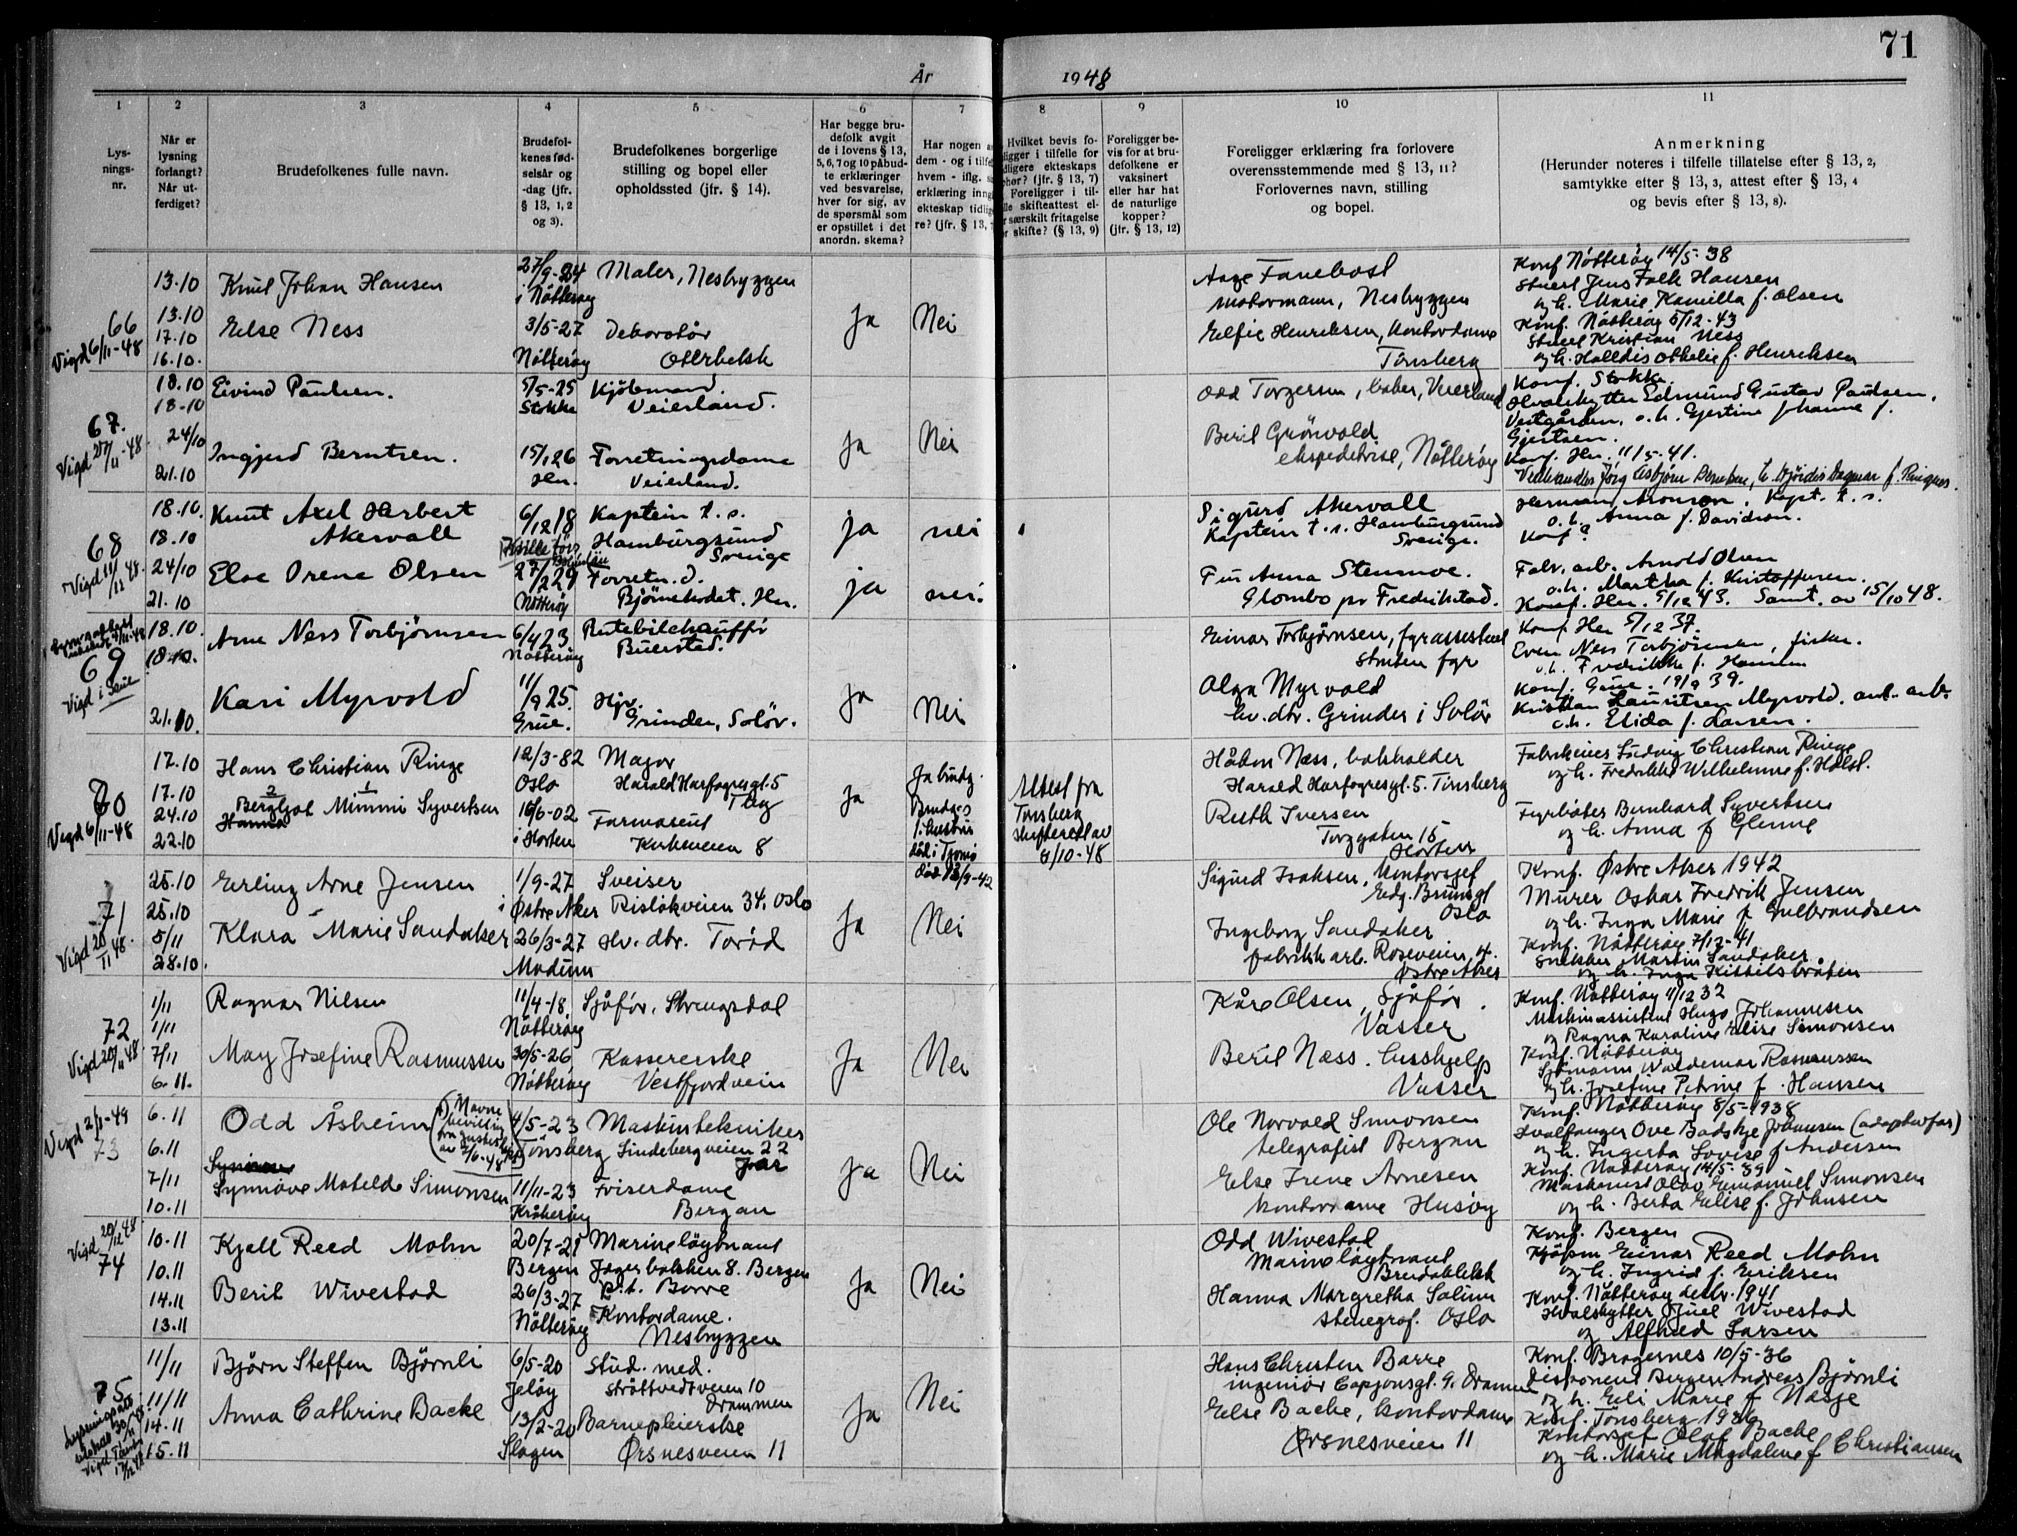 71
År 1948
1
2
3
4
5
6
7
8
9
10
11
Lys-
nings-
nr.
Når er
lysning
forlangt?
Når ut-
ferdiget?
Brudefolkenes fulle navn.
Brudefol-
kenes fød-
selsår og
-dag (jfr.
§ 13, 1, 2
og 3).
Brudefolkenes borgerlige
stilling og bopel eller
opholdssted (jfr. § 14).
Har begge bru-
defolk avgit
de i lovens § 13,
5, 6, 7 og 10 påbud-
te erklæringer
ved besvarelse,
hver for sig, av
de spørsmål som
er opstillet i det
anordn. skema?
Har nogen a
dem - og i tilfe
hvem - iflg. si
erklæring inng
ekteskap tidlig
re? (jfr. § 13, 7
Hvilket bevis fo-
ligger i tilfelle for
dligere ekteskaps
phør? (jfr. § 13, 7)
Foreligger i til-
lle skifteattest el-
r særskilt fritagelse
or skifte? (§ 13, 9)
Foreligger be-
vis for at bru-
defolkene er
vaksinert
eller har hat
de naturlige
kopper?
(jfr. § 13, 12)
Foreligger erklæring fra forlovere
overensstemmende med § 13, 11?
Forlovernes navn, stilling
og bopel.
Anmerkning
(Herunder noteres i tilfelle tillatelse efter § 13, 2,
samtykke efter § 13, 3, attest efter § 13, 4
og bevis efter § 13, 8).
66
Vigd 6/11-48
13.10
13.10
17.10
16.10.
Knut Johan Hansen
Else Ness
27/9-24
i Nøtterøy
3/5-27
Nøtterøy
Maler, Nesbryggen
Dekoratør
Oterbekk
Ja
Nei
Aage Fanebost
motormann, Nesbryggen
Elfie Henriksen, kontordame
Tønsberg
Konf Nøtterøy 14/5-38
Stuert Jens Falk Hansen
og h. Marie Kamilla f. Olsen
Konf. Nøtterøy 5/12-43
Stuert Kristian Ness
og h. Halldis Othelie f. Henriksen
67.
Vigd 27/11-48
18.10
18.10
24/10
21.10
Eivind Paulsen.
Ingjerd Berntsen.
5/5-25
Stokke
15/1 26
Her.
Kjøbmand.
Veierland.
Forretningsdame
Veierland.
Ja
Nei
Odd Torgersen, baker, Veierland
Beril Grønvold
ekspeditrise, Nøtterøy
Konf. Stokke
Hvalskytter Edmund Gustav Paulsen,
Vestgården, o. h. Gjertine Johanne f.
Gjertsen.
Konf. Her. 11/5-41.
68
Vigd 11/12 48.
18.10.
18.10
24/10
21.10
Knut Axel Herbert
Akervall
Else Irene Olsen
6/12 18
27/2 29
Nøtterøy
Kaptein t. s.
Hamburgsund
Sverige
Forretn. d.
Bjørnebodet. Her.
ja
nei
ja
nei.
Sigurd Akervall
Kaptein t. s. Hamburgsund
Sverige.
Fru Anna Stenmoe.
Glombo pr Fredrikstad.
Herman Aronson, Kapt. t. s.
o. h. Anna f. Davidson.
Konf?
Fabr. arb. Arnold Olsen
o. h. Martha f. Kristoffersen.
Konf. Her. 5/12 43. Samt. av 15/10 48.
69
Vigd i Grue
18.10.
18.10.
21.10.
Arne Ness Torbjørnsen
Kari Myrvold
6/4 23
Nøtterøy
11/9 25.
Grue.
Rutebilchauffør
Buerstad.
Hjv.
Grinder, Solør.
Ja
Nei
Einar Torbjørnsen, fyrassistent
Straten fyr
Olga Myrvold
hv. dtr. Grinder i Solør
Konf. Her 5/12 37.
Even Ness Torbjørnsen, fisker.
o. h. Fredrikke f. Hansen
Konf. Grue. 19/9 39.
Kristian Lauritsen Myrvold. anl. arb.
o. h. Elida f. Larsen.
70
Vigd 6/11-48
17.10
17.10
24.10
22.10
Hans Christian Ringe
2 1
Bergljot Mimmi Syvertsen
Hanna
12/3-82
Oslo
16/6-02
i Horten
Major
Harald Harfagresgt. 5
Tbg
Farmaseut
Kirkeveien 8
Ja
Ja brudg.
Brudg.s
1. hustru
død i Tjømø
død 13/9-42
Attest fra
Tønsberg
skifterett av
4/10-48
Håkon Næss, bokholder
Harald Harfagresgt. 5. Tønsberg
Ruth Iversen
Torggaten 15
Horten
Fabrikeier Ludvig Christian Ringe
og h. Fredrikke Wilhelmine f. Holst.
Fyrbøter Bernhard Syvertsen
og h. Anna f Glenne
71
Vigd 20/11 48.
25.10
25.10
5/11
28.10.
Erling Arne Jensen
Klara Marie Sandaker
1/9-27
i Østre Aker
26/3-27
Modum
Sveiser
Risløkveien 34. Oslo
Hv. dtr. Torød
Ja
Nei
Sigurd Isaksen, Kontorsjef
Edv. Brunsgt
Oslo
Ingeborg Sandaker
fabrikk arb. Roseveien, 4.
Østre Aker
Konf. Østre Aker 1942
Murer Oskar Fredrik Jensen
og h. Inga Marie f Gulbrandsen
Konf. Nøtterøy 7/12-41
Snekker Martin Sandaker
og h. Inga Kittilsbråten
72
Vigd 20/11 48.
1/11
1/11
7/11
6.11.
Ragnar Nilsen
May Josefine Rasmussen
11/4-18.
Nøtterøy
30/5-26
Nøtterøy
Sjåfør, Strengsdal
Kassererske
Vestfjordvein
Ja
Nei
Kåre Olsen, Sjåfør.
Vasser
Beril Næss. husshjelp
Vasser
Konf. Nøtterøy 11/12 32
Maskinassistent Hugo Johannesen
og Ragna Karoline Elise Simonsen
Konf. Nøtterøy
Sjømann Waldemar Rasmussen
og h. Josefine Petrine f. Hansen
Vigd 2/1-49
73
6.11
6.11
7/11
10.11
Odd Åsheim
(Navne
bevilling
fra justisdept
av 2/6-48)
Synnøve Matelde Simonsen
4/5-23
Tønsberg
11/11-23
Kråkerøy
Maskintekniker
Lindebergveien 22
Jar
Friserdame
Bergan
Ja
Nei
Ole Norvald Simonsen
telegrafist Bergan
Else Irene Arnesen
kontordame Husøy
Konf. Nøtterøy 8/5-1938
Hvalfanger Ove Badskje Johansen (adoptivfar)
og h. Ingerta Lovise f Andersen
Konf. Nøtterøy 14/5-39
Maskinist Olav Emanuel Simonsen
og h. Berta Elise f. Johnsen
Vigd 20/12 48
74
10.11
10.11
14.11
13.11
Kjell Reed Mohn
Berit Wivestad
20/7-21
Bergen
26/3-27
Nøtterøy
Marineløytnant
Jægerbakken 8. Bergen
p.t. Borre
Kontordame.
Nesbryggen
Ja
Nei
Odd Wivestad
Marineløytnant
Breidablikk
Hanna Margretha Solum
stenograf. Oslo
Konf. Bergen
Kjøpm Einar Reed Mohn
og h. Ingrid f. Eriksen
Konf. Nøtterøy desbr. 1941
Hvalskytter Juel Wivestad
og Alfhild Larsen
75
11/11
11/11
14.11
15.11
Bjørn Steffen Bjørnli
Anna Cathrine Backe
6/5-20
Jeløy
13/2-20
Slagen
Stud. med.
Strøttvedtveien 10
Drammen
Barnepleierske
Ørsnesveien 11
Ja
Nei
Hans Christen Barre
ingeniør Cappjonsgt. 9. Drammen
Else Backe, kontordame
Ørsnesveien 11
Konf. Bragernes 10/5-36
Disponent Bergen Andreas Bjørnli
og h. Eli Marie f Næsje
Konf. Tønsberg 1936
Kontorsjef Olaf Backe
og h. Marie Magdalene f Christiansen